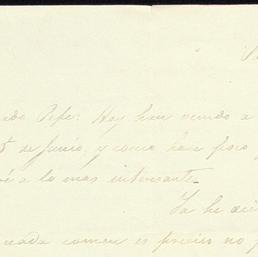 do Pepe: Hoy han venido a
5 de Junio, y como hace poco
é a lo mas interesante.
Ya he di
nada comun es preciso no